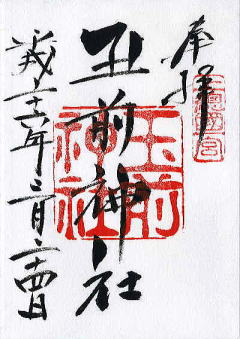 奉拝
上総國一宮
玉前神社
玉前神社
平成二十二年三月二十四日